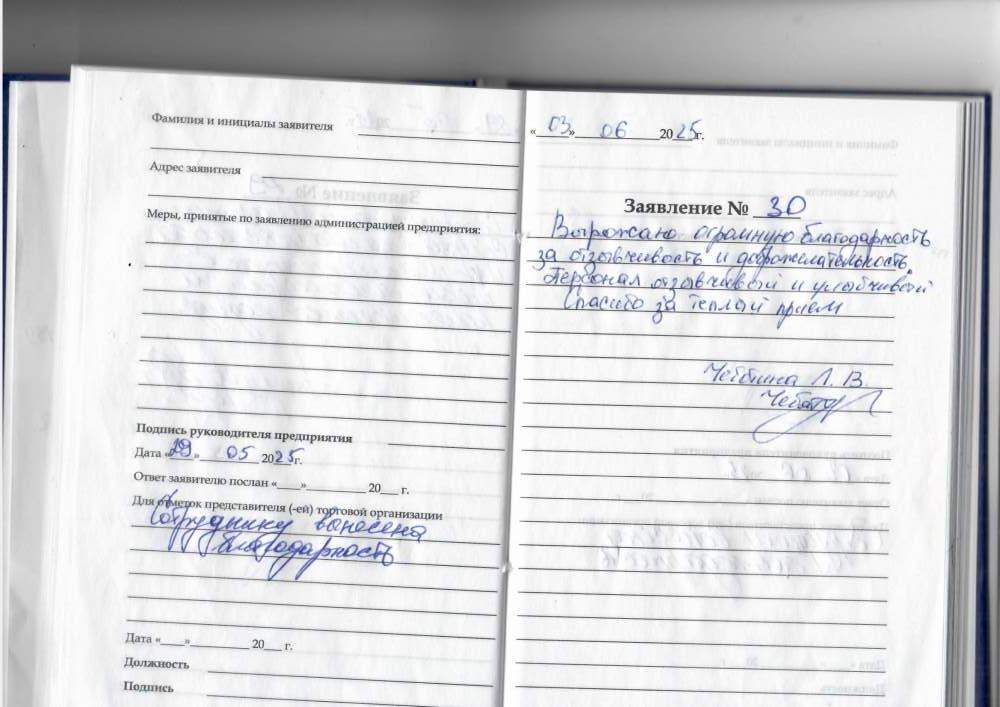 Фамилия и инициалы заявителя
Адрес заявителя
Меры, принятые по заявлению администрацией предприятия:
Подпись руководителя предприятия
Дата «29» 05 2025г.
Ответ заявителю послан «____»__________ 20___ г.
Для отметок представителя (-ей) торговой организации
Сотруднику вынесена
благодарность
Дата «____»__________ 20___ г.
Должность
Подпись
«03» 06 2025г.
Заявление № 30
Выражаю огромную благодарность
за отзывчивость и доброжелательность.
Персонал отзывчивый и улыбчивый
Спасибо за теплый прием
Л. В.